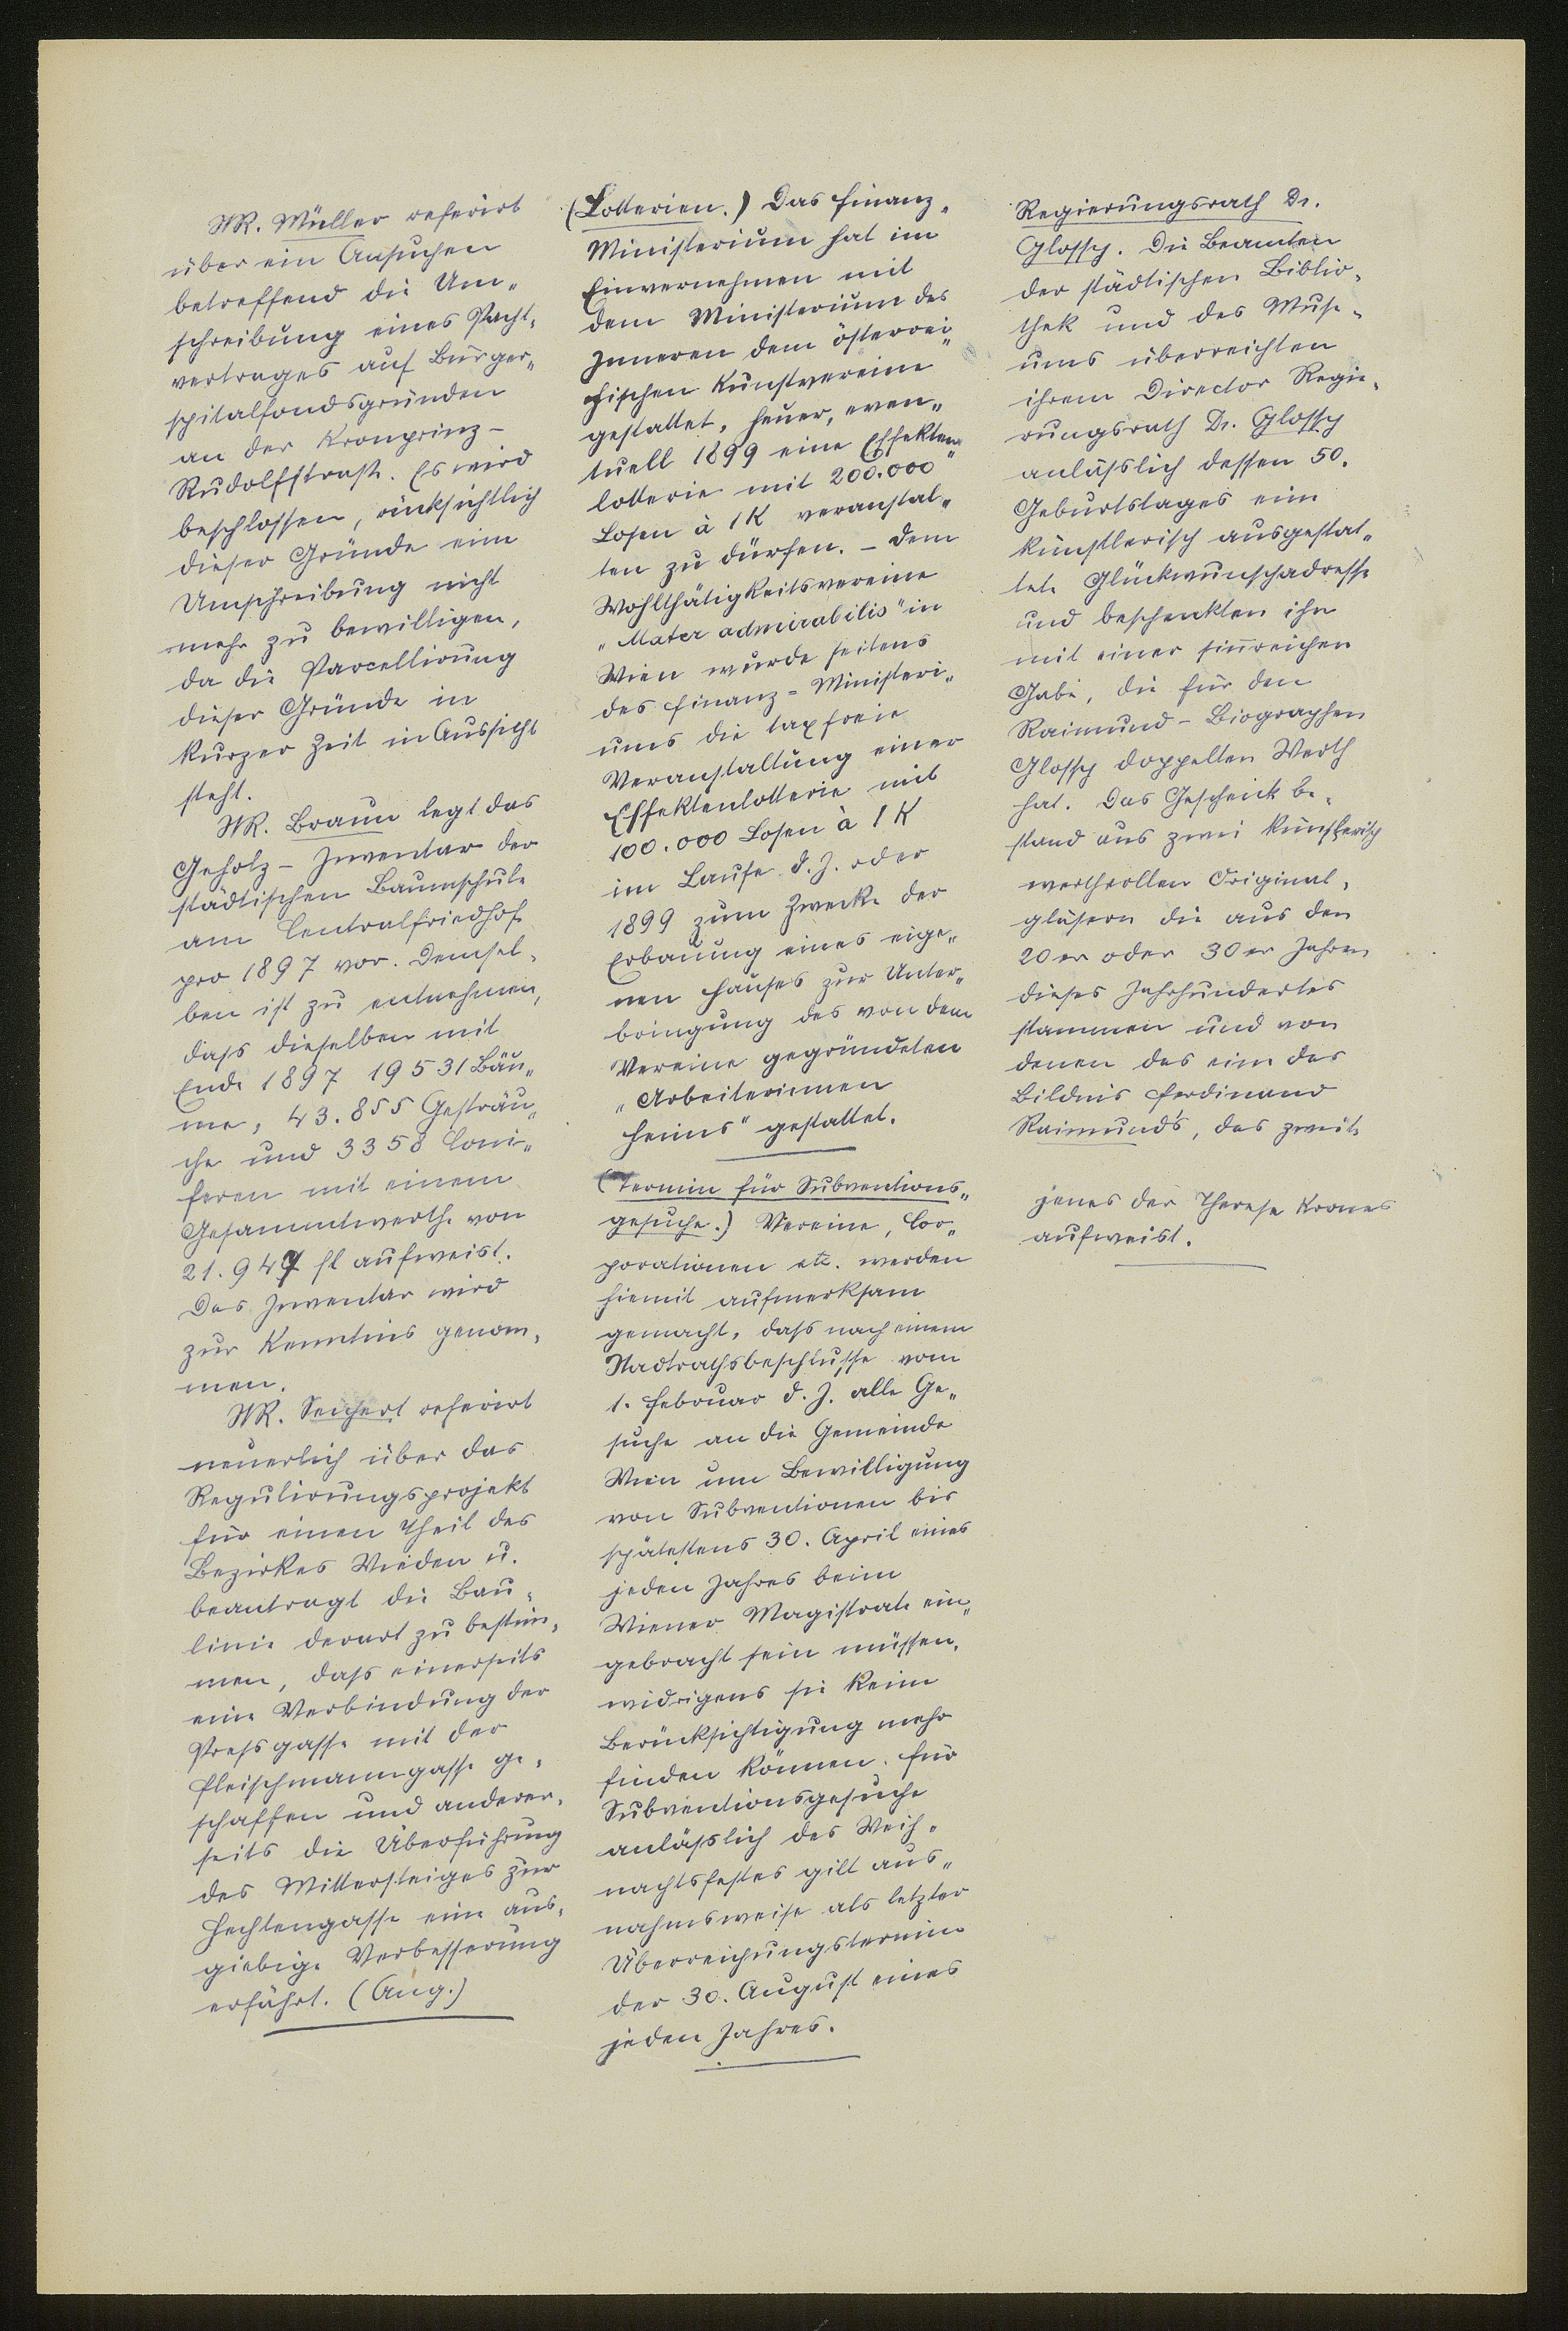 StR. Müller referirt
über ein Ansuchen
betreffend die Um-
schreibung eines Pacht-
vertrages auf Bürger-
spitalfondsgründen
an der Kronprinz-
Rudolfstraße. Es wird
beschlossen, rücksichtlich
dieser Gründe eine
Umschreibung nicht
mehr zu bewilligen,
da die Parcellirung
dieser Gründe in
kurzer Zeit in Aussicht
steht.
StR. Braun legt das
Geholz-Inventar der
städtischen Baumschule
am Centralfriedhof
pro 1897 vor. Demsel-
ben ist zu entnehmen,
daß dieselben mit
Ende 1897 19531 Bäu-
me, 43.855 Gesträu-
che und 3358 Coni-
feren mit einem
Gesammtwerthe von
21.947 fl aufweist.
Das Inventar wird
zur Kenntnis genom-
men.
StR. Seichert referirt
neuerlich über das
Regulirungsprojekt
für einen Theil des
Bezirkes Wieden u.
beantragt die Bau-
linie derart zu bestim-
men, daß einerseits
eine Verbindung der
Preßgasse mit der
Fleischmanngasse ge-
schaffen und anderer-
seits die Überführung
des Mittersteiges zur
Hechtengasse eine aus-
giebige Verbesserung
erfährt. (Ang.)
(Lotterien.) Das Finanz-
Ministerium hat im
Einvernehmen mit
dem Ministerium des
Inneren dem österrei-
chischen Kunstvereine
gestattet, heuer, even-
tuell 1899 eine Effekten-
lotterie mit 200.000
Losen à 1K veranstal-
ten zu dürfen. - Dem
Wohlthätigkeitsvereine
"Mater admirabilis" in
Wien wurde seitens
des Finanz-Ministeri-
ums die taxfreie
Veranstaltung einer
Effektenlotterie mit
100.000 Losen à 1 K
im Laufe d. J. oder
1899 zum Zwecke der
Erbauung eines eige-
nen Hauses zur Unter-
bringung des von dem
Vereine gegründeten
"Arbeiterinnen
heims" gestattet.
(Termin für Subventions-
gesuche.) Vereine, Cor-
porationen etc. werden
hiemit aufmerksam
gemacht, daß nach einem
Stadtrathsbeschlusse vom
1. Februar d. J. alle Ge-
suche an die Gemeinde
Wien um Bewilligung
von Subventionen bis
spätestens 30. April eines
jeden Jahres beim
Wiener Magistrate ein-
gebracht sein müssen,
widrigens sie keine
Berücksichtigung mehr
finden können. Für
Subventionsgesuche
anläßlich des Weih-
nachtsfestes gilt aus-
nahmsweise als letzter
Überreichungstermin
der 30. August eines
jeden Jahres.
Regierungsrath Dr.
Glossy. Die Beamten
der städtischen Biblio-
thek und des Muse-
ums überreichten
ihrem Director Regie-
rungsrath Dr. Glossy
anläßlich dessen 50.
Geburtstages eine
künstlerisch ausgestat-
tete Glückwunschadresse
und beschenkten ihn
mit einer sinnreichen
Gabe, die für den
Raimund-Biographen
Glossy doppelten Werth
hat. Das Geschenk be-
stand aus zwei künstlerisch
werthvollen Original-
gläsern die aus den
20er oder 30er Jahren
dieses Jahrhundertes
stammen und von
denen das eine das
Bildnis Ferdinand
Raimund's, das zweite
jenes der Therese Krones
aufweist.